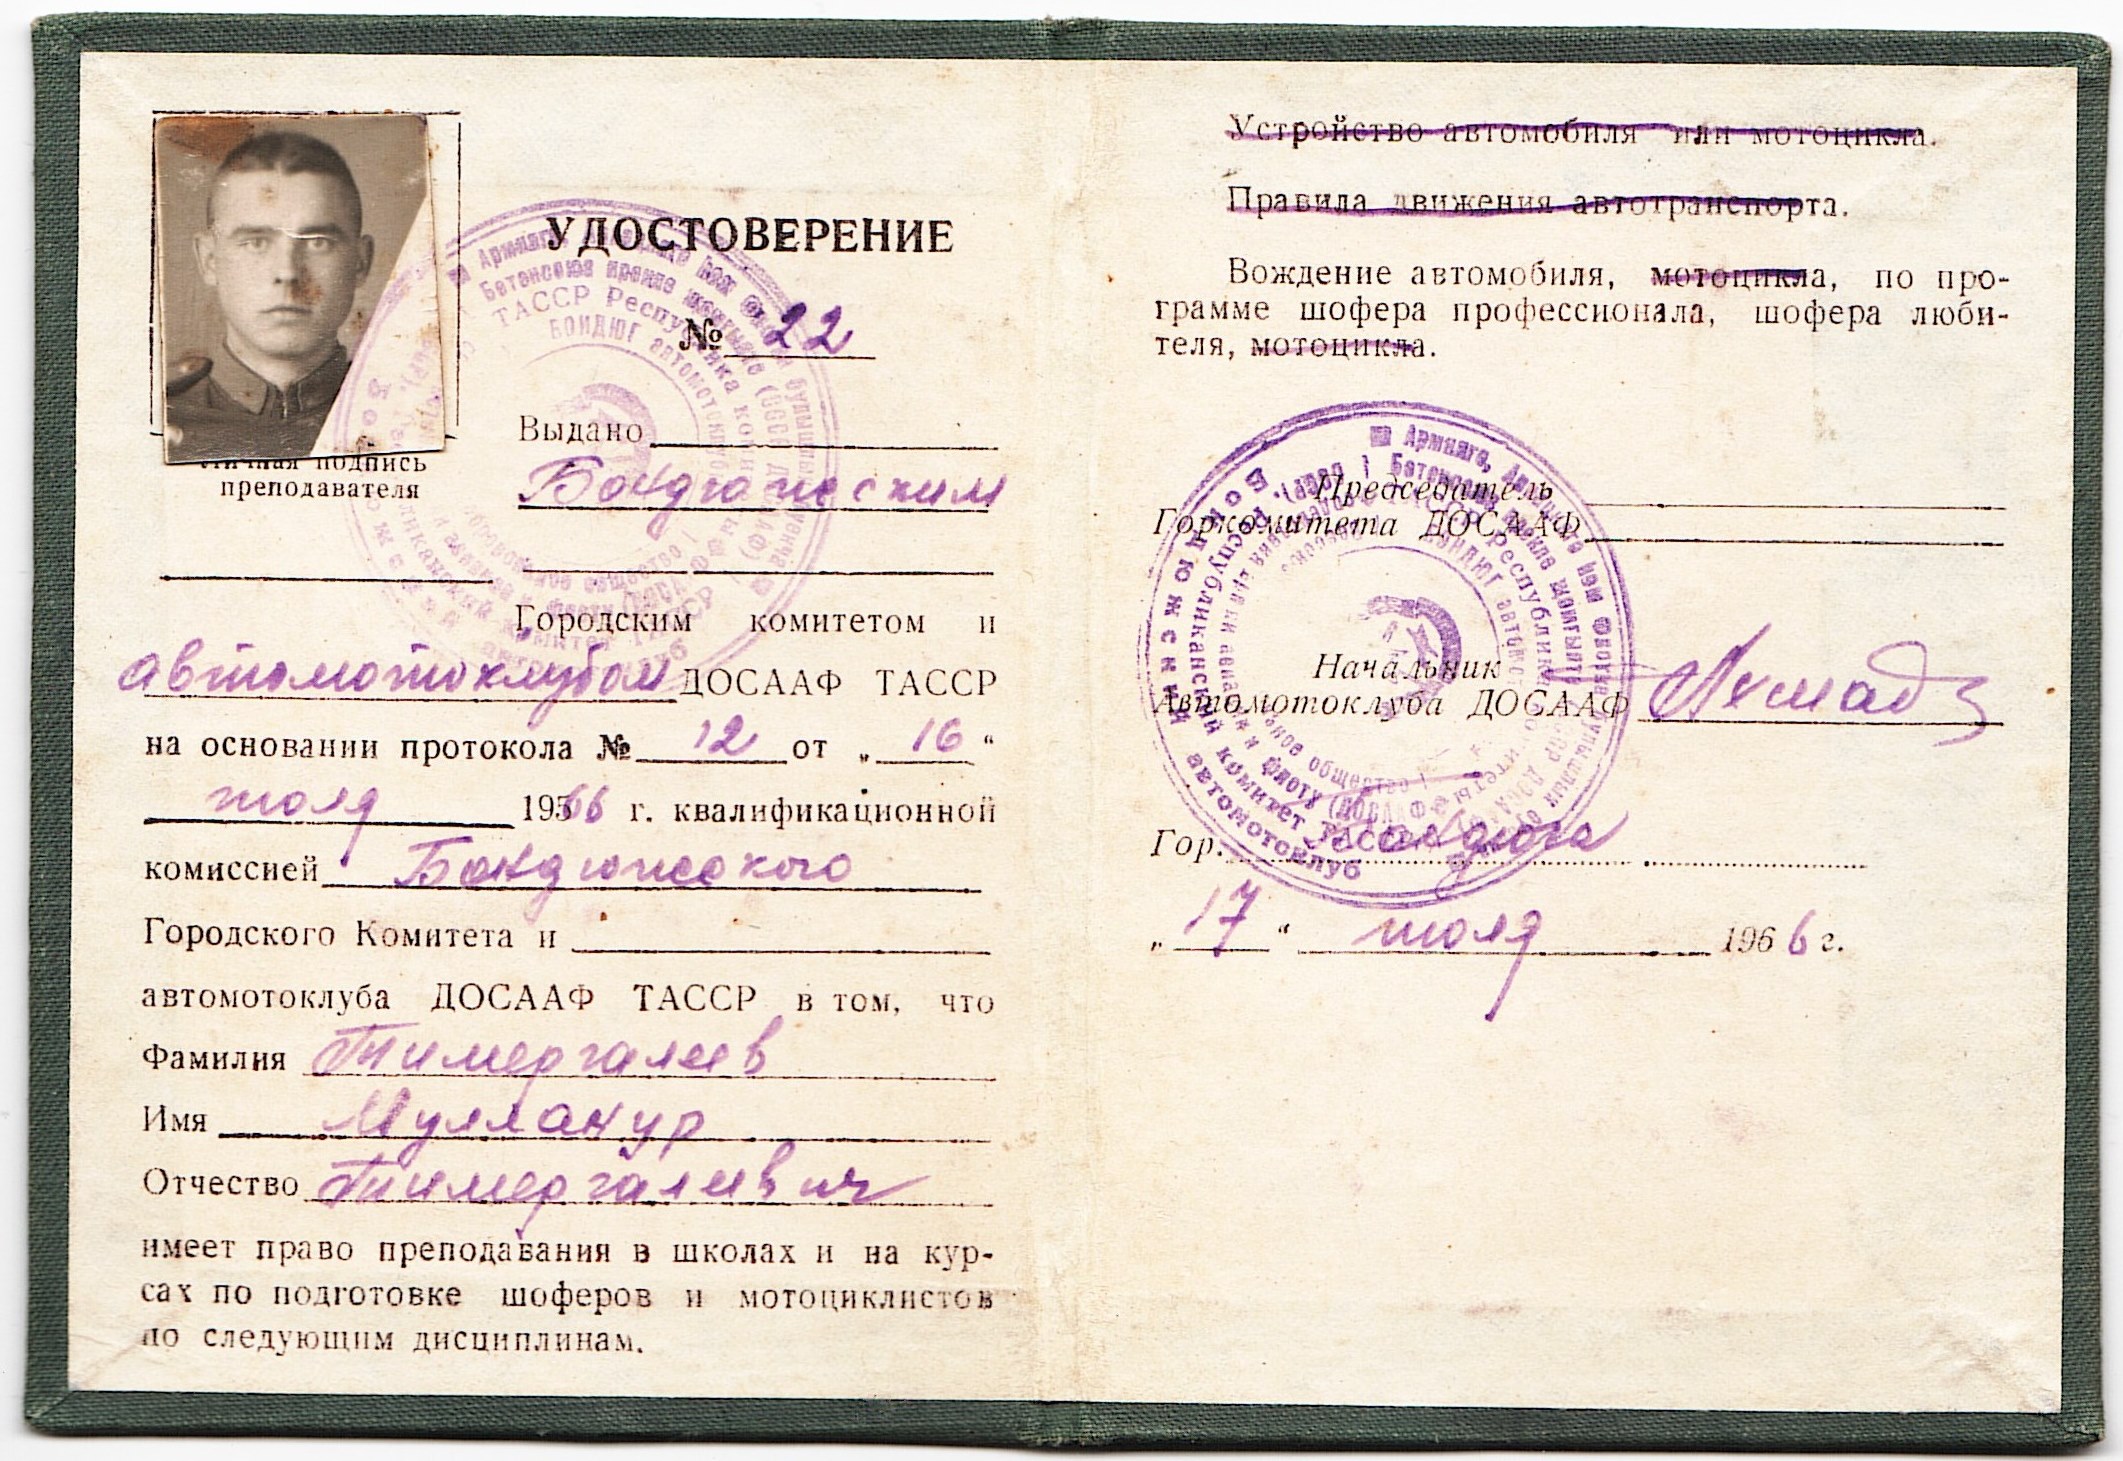 УДОСТОВЕРЕНИЕ
№ 22
Выдано
Бондюжским
Личная подпись
преподавателя
Городским комитетом и
автомотоклубом ДОСААФ ТАССР
на основании протокола № 12 от „ 16 “
июля 1966 г. квалификационной
комиссией Бондюжского
Городского Комитета и
автомотоклуба ДОСААФ ТАССР в том, что
Фамилия Тимергалеев
Имя Мулланур
Отчество Тимергалеевич
имеет право преподавания в школах и на кур-
сах по подготовке шоферов и мотоциклистов
по следующим дисциплинам.
Устройство автомобиля или мотоцикла.
Правила движения автотранспорта.
Вождение автомобиля, мотоцикла, по про-
грамме шофера профессионала, шофера люби-
теля, мотоцикла.
Председатель
Горкомитета ДОСААФ
Начальник
Автомотоклуба ДОСААФ
Гор. Бондюга
„ 17 “ июля 1966 г.
Бондюжский автомотоклуб
Республиканский комитет ТАССР